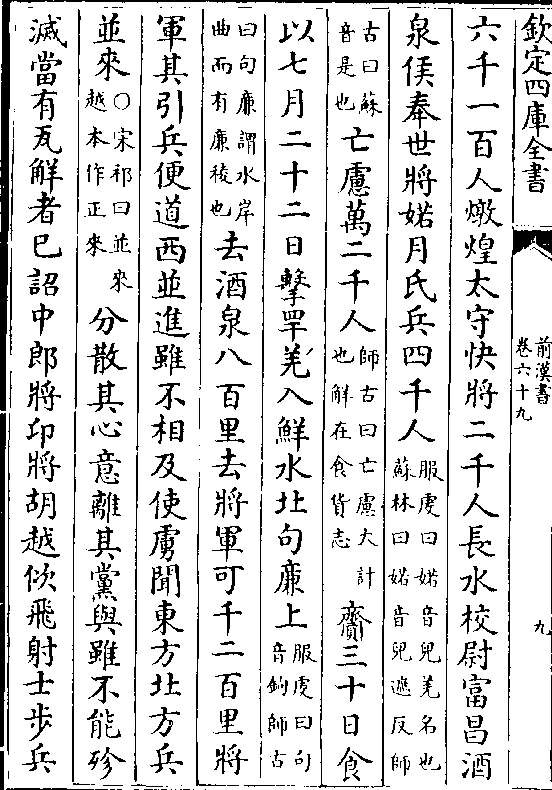 欽定四庫全書
前漢書
卷六十九
九
六千一百人燉煌太守快將二千人長水校尉富昌酒
泉侯奉世將婼月氏兵四千人服虔曰婼音兒羌名也蘇林曰婼音兒遮反師
古曰蘇音是也亡慮萬二千人師古曰亡慮大計也解在食貨志齎三十日食
以七月二十二日擊䍐羌入鮮水北句廉上服虔曰句音鉤師古
曰句廉謂水岸曲而有廉稜也去酒泉八百里去將軍可千二百里將
軍其引兵便道西並進雖不相及使虜聞東方北方兵
並來○宋祁曰並來越本作正來分散其心意離其黨與雖不能殄
滅當有瓦解者已詔中郎將卬將胡越佽飛射士步兵